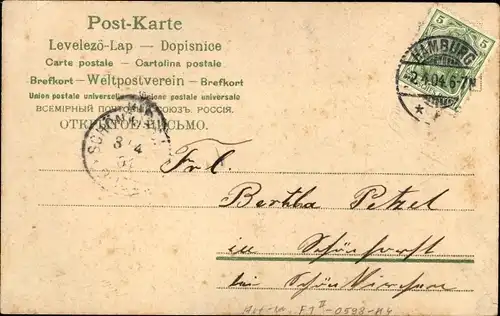 Post-Karte
Levelező-Lap — Dopisnice
Carte postale — Cartolina postale
Brefkort — Weltpostverein — Brefkort
Union postale universelle Unione postale universale
ВСЕМІРНЫЙ СОЮЗЪ. РОССІЯ.
ОТКРЫТОЕ ПИСЬМО.
5 5
HAMBURG
-2.4.04 6-7N
*
3/4
Frl.
Bertha Petzel
in Schönhorst
bei Schönkirchen